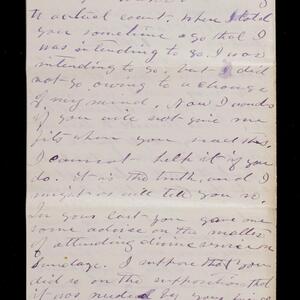 to actual count. When I told
you sometime ago that I
was intending to go. I was
intending to go, but I did
not go owing to a change
of my mind. Now I wonder
if you will not give me
fits when you read this,
I cannot help it if you
do. It is the truth, and I
might as well tell you so.
In your last you gave me
some advise on the matter
of attending divine service on
Sundays. I suppose that you
did so on the supposition that
it was needed by your